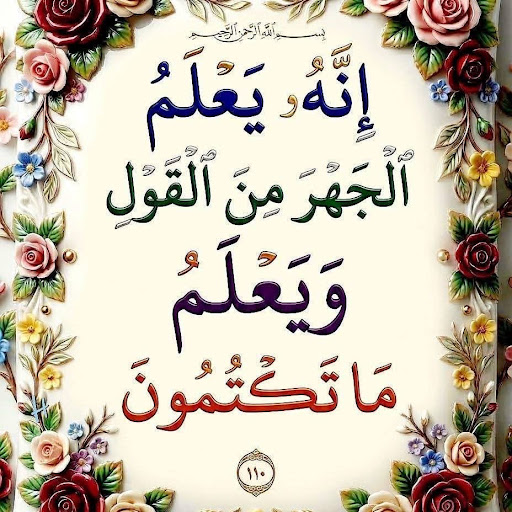 بسم الله الرحمن الرحيم
إِنَّهُۥ يَعْلَمُ
ٱلْجَهْرَ مِنَ ٱلْقَوْلِ
وَيَعْلَمُ
مَا تَكْتُمُونَ
١١٠